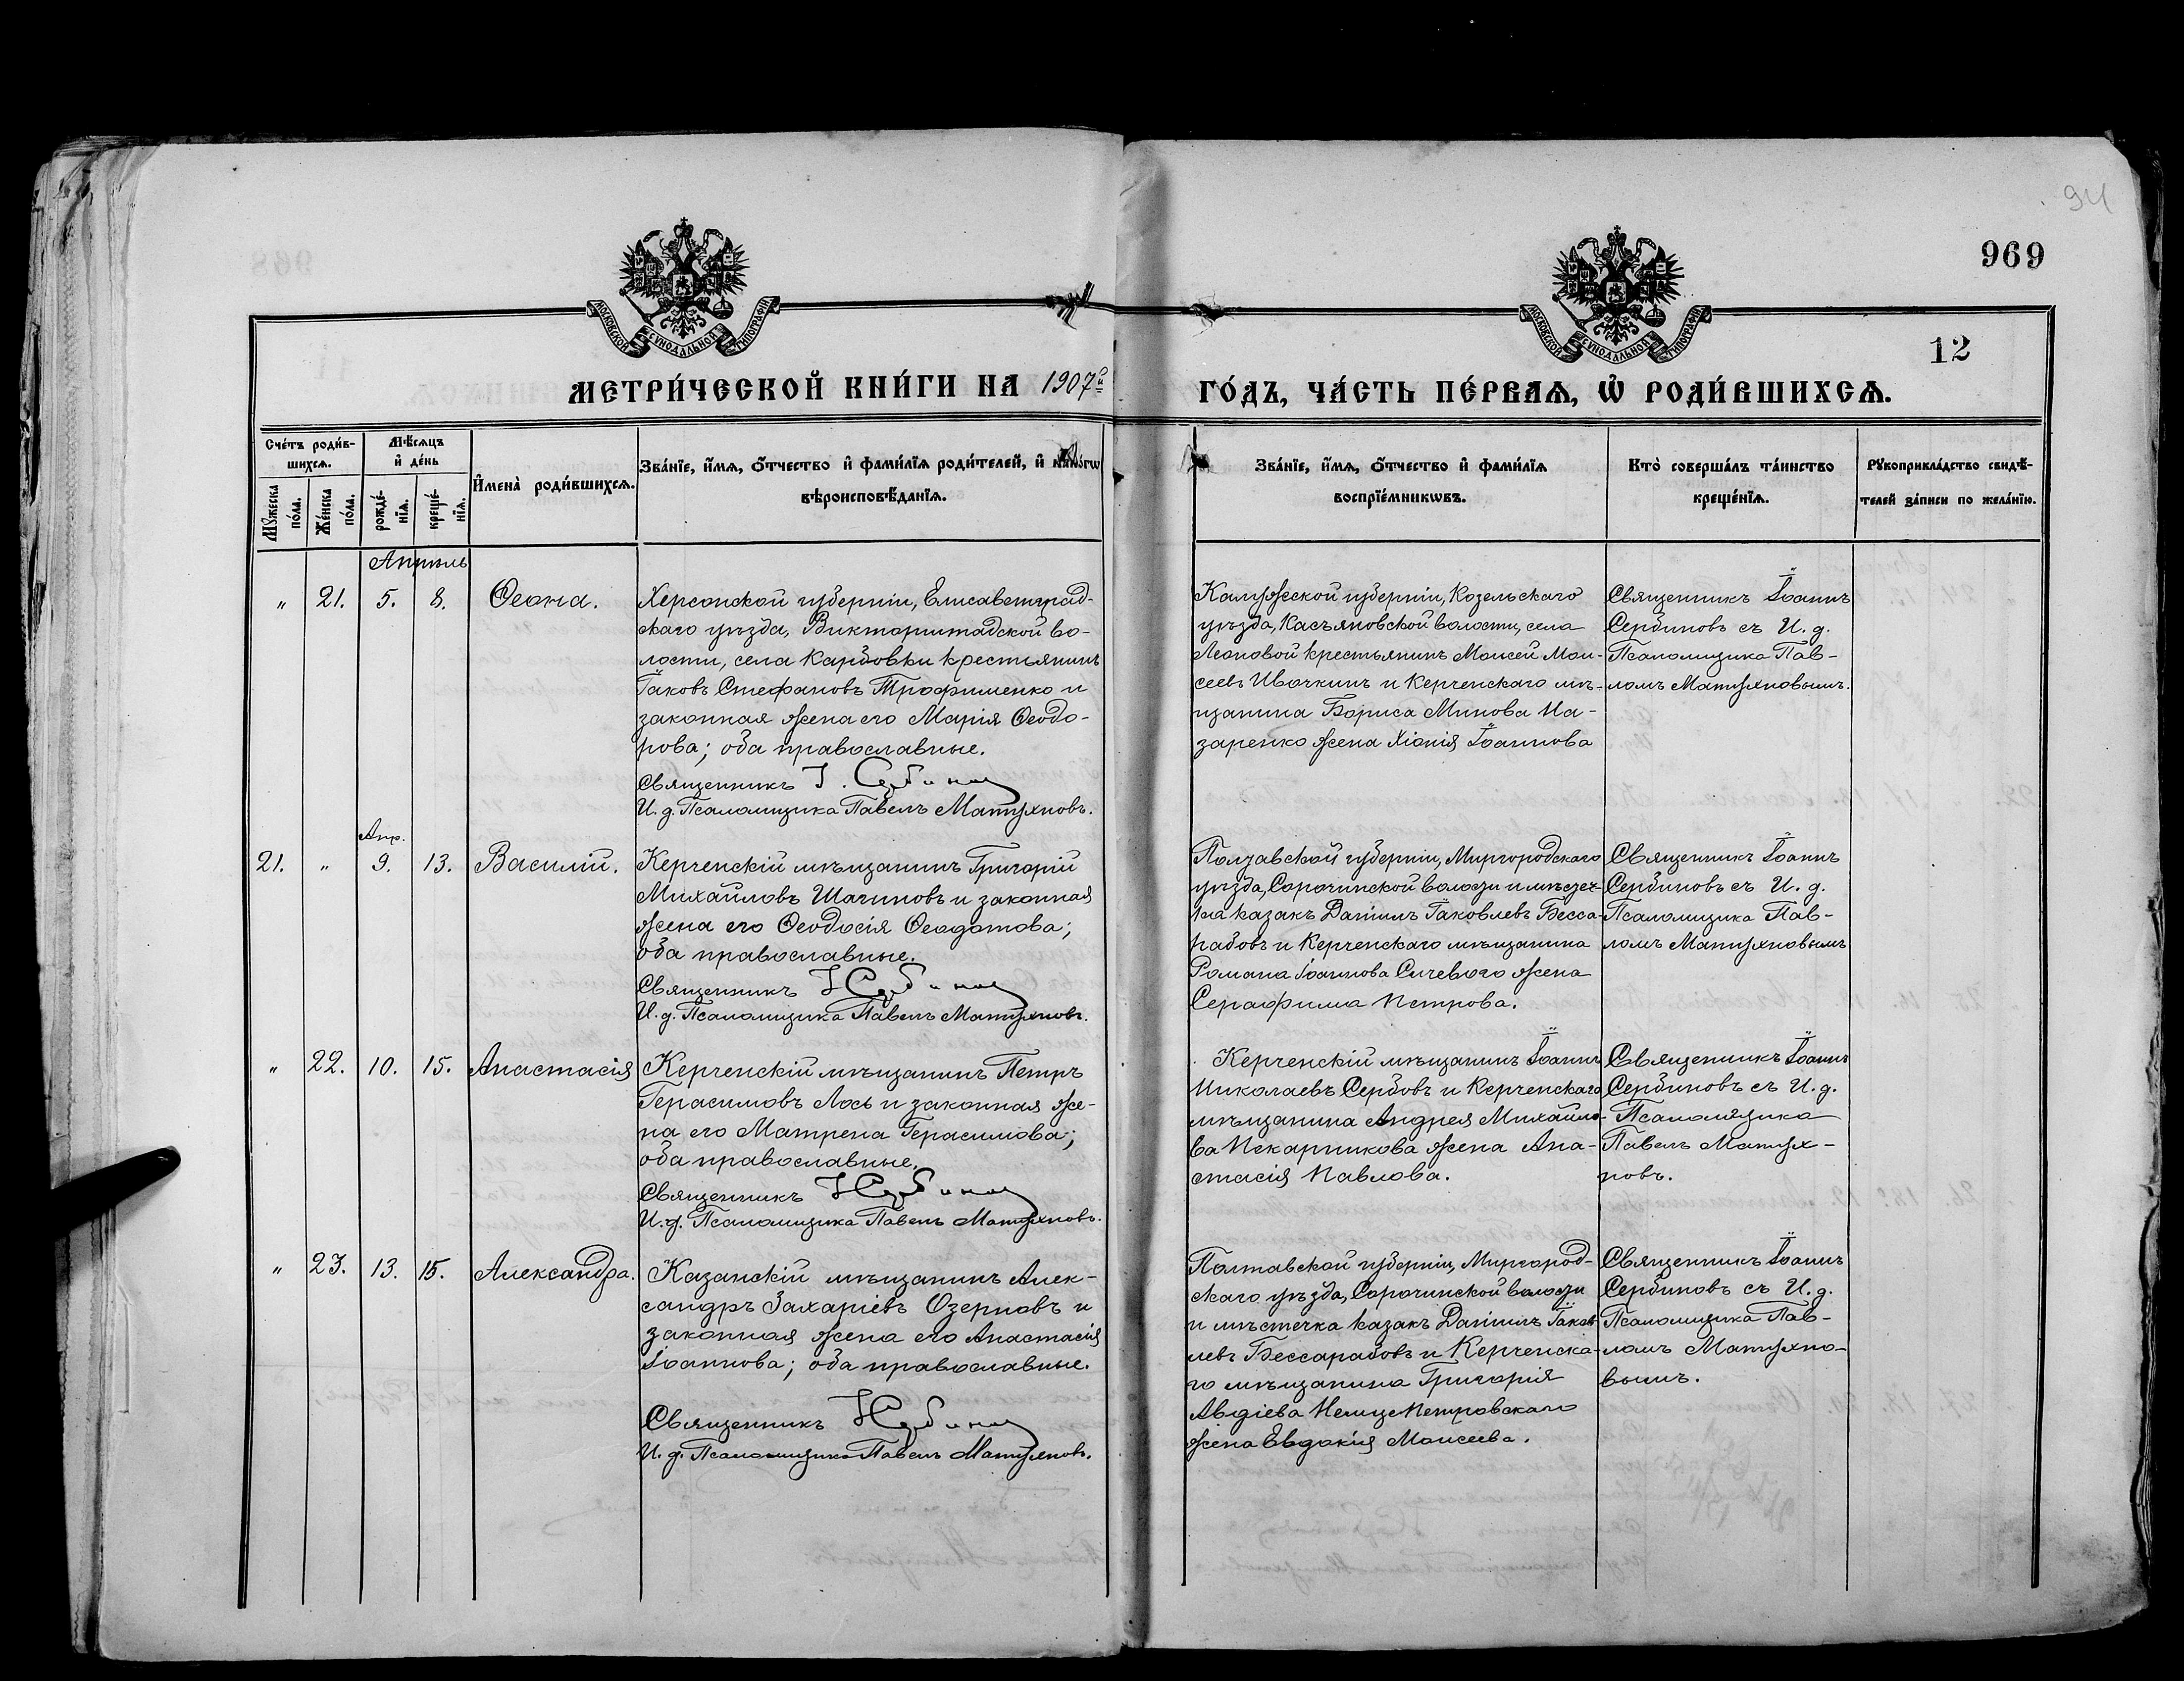 94
969
12
МОСКОВСКОЙ СѴНОДАЛЬНОЙ ТИПОГРАФІИ
МОСКОВСКОЙ СѴНОДАЛЬНОЙ ТИПОГРАФІИ
МЕТРИ́ЧЕСКОЙ КНИ́ГИ НА 1907й ГО́ДЪ, ЧА́СТЬ ПЕ́РВАѦ, Ѡ҆ РОДИ́ВШИХСѦ.
Сче́тъ роди́в-
шихсѧ.
Мꙋжеска
по́ла.
Же́нска
по́ла.
Мѣ́сѧцъ
и҆ де́нь
рожде́-
нїѧ.
креще́-
нїѧ.
И҆мена̀ роди́вшихсѧ.
Зва́нїе, и҆́мѧ, ѻ҆́тчество и҆ фами́лїѧ роди́телей, и҆ како́гѡ
вѣроисповѣ́данїѧ.
Зва́нїе, и҆́мѧ, ѻ҆́тчество и҆ фами́лїѧ
воспрїе́мникѡвъ.
Кто̀ соверша́лъ та́инство
креще́нїѧ.
Рꙋкоприкла́дство свидѣ́-
телей за́писи по жела́нїю.
Апрѣль
" 21. 5. 8. Ѳеона.
Херсонской губерніи, Елисаветград-
скаго уѣзда, Викторштадской во-
лости, села Карбовки крестьянинъ
Іаковъ Стефановъ Трофименко и
законная жена его Марія Ѳеодо-
рова; оба православные.
Священникъ І. Сербиновъ
И. д. Псаломщика Павелъ Матухновъ.
Калужской губерніи, Козельскаго
уѣзда, Касьяновской волости, села
Леоновой крестьянинъ Моисей Мои-
сеевъ Ивочкинъ и Керченскаго мѣ-
щанина Бориса Минова На-
заренко жена Хіонія Іоаннова
Священникъ Іоаннъ
Сербиновъ съ И. д.
Псаломщика Пав-
ломъ Матухновымъ.
Апр.
21. " 9. 13. Василій.
Керченскій мѣщанинъ Григорій
Михайловъ Шагиновъ и законная
жена его Ѳеодосія Ѳеодотова;
оба православные.
Священникъ І Сербиновъ
И. д. Псаломщика Павелъ Матухновъ.
Полтавской губерніи, Миргородскаго
уѣзда, Сорочинской волости и мѣстеч-
ка казакъ Даніилъ Іаковлевъ Бесса-
рабовъ и Керченскаго мѣщанина
Романа Іоаннова Сичевого жена
Серафима Петрова.
Священникъ Іоаннъ
Сербиновъ съ И. д.
Псаломщика Пав-
ломъ Матухновымъ
" 22. 10. 15. Анастасія
Керченскій мѣщанинъ Петръ
Герасимовъ Лось и законная же-
на его Матрена Герасимова;
оба православные.
Священникъ І Сербиновъ
И. д. Псаломщика Павелъ Матухновъ.
Керченскій мѣщанинъ Іоаннъ
Николаевъ Сербовъ и Керченскаго
мѣщанина Андрея Михайло-
ва Пекарникова жена Ана-
стасія Павлова.
Священникъ Іоаннъ
Сербиновъ съ И. д.
Псаломщика
Павелъ Матух-
новъ.
" 23. 13. 15. Александра.
Казанскій мѣщанинъ Алек-
сандръ Захаріевъ Озерновъ и
законная жена его Анастасія
Іоаннова; оба православные.
Священникъ І Сербиновъ
И. д. Псаломщика Павелъ Матухновъ.
Полтавской губерніи, Миргород-
скаго уѣзда, Сорочинской волости
и мѣстечка казакъ Даніилъ Іаков-
левъ Бессарабовъ и Керченска-
го мѣщанина Григорія
Авдіева Немце-Петровскаго
жена Евдокія Моисеева.
Священникъ Іоаннъ
Сербиновъ съ И. д.
Псаломщика Пав-
ломъ Матухно-
вымъ.